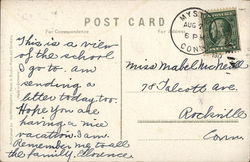 POST CARD
For Correspondence
MYS
AUG
6 P
CON
This is a view
of the school
I go to. am
sending a
letter today too.
Hope you are
having a nice
vacation. I am.
Remember me to all
the family, Florence
Miss Mabel
78 Talcott ave.
Rockville
Conn